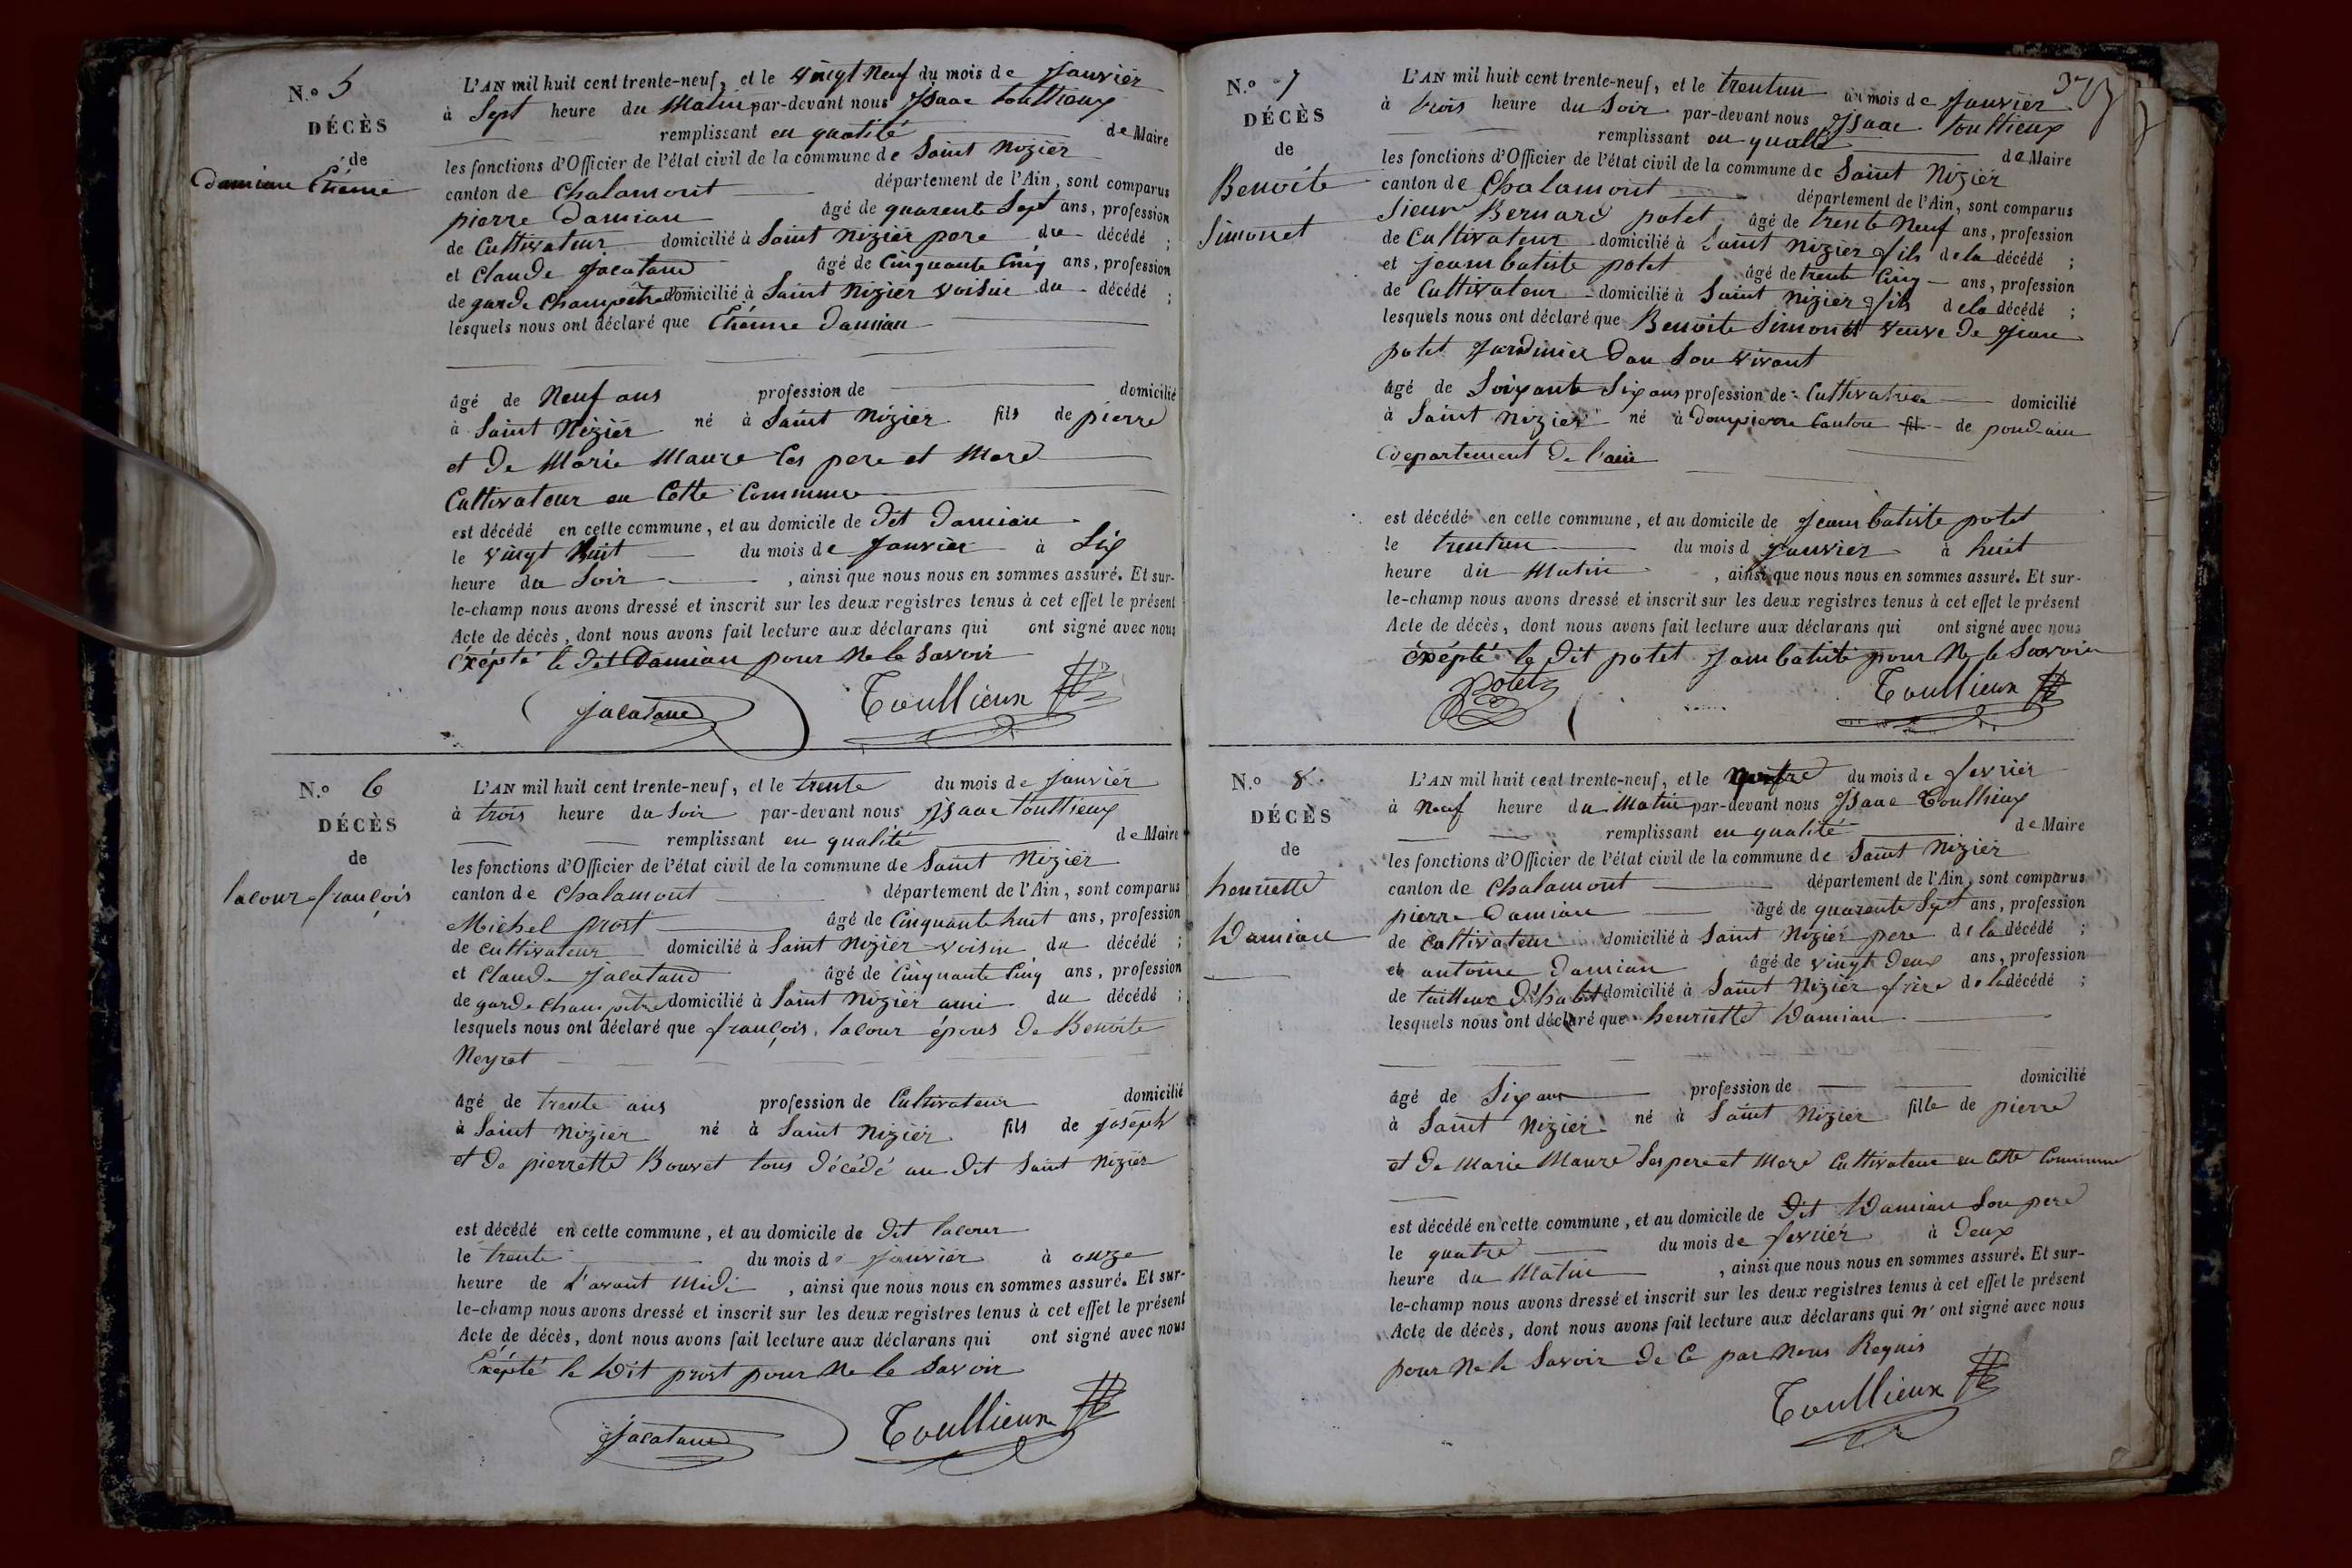 N.o 5
DÉCÈS
de
Damian Étiénne
L'AN mil huit cent trente-neuf, et le vingt Neuf du mois de Janvier
à Sept heure du Matin par-devant nous Isaac toullieux
remplissant en qualité de Maire
les fonctions d'Officier de l'état civil de la commune de Saint Nizier
canton de Chalamont département de l'Ain, sont comparus
pierre Damian âgé de quarente Sept ans, profession
de Cultivateur domicilié à Saint Nizier pere du décédé ;
et Claude Jacataud âgé de Cinquante Cinq ans, profession
de garde Champêtre domicilié à Saint Nizier voisin du décédé ;
lesquels nous ont déclaré que Etiénne Damian
âgé de Neuf ans profession de domicilié
à Saint Nizier né à Saint Nizier fils de pierre
et De Marie Maure Ces pere et Mere
Cultivateur en Cette Commune
est décédé en cette commune, et au domicile de Dit Damian
le vingt huit du mois de Janvier à Six
heure du Soir , ainsi que nous nous en sommes assuré. Et sur-
le-champ nous avons dressé et inscrit sur les deux registres tenus à cet effet le présent
Acte de décès, dont nous avons fait lecture aux déclarans qui ont signé avec nous
éxépté le Dit Damian pour Ne le Savoir
Jacataud Toullieux
N.o 6
DÉCÈS
de
lacour françois
L'AN mil huit cent trente-neuf, et le trente du mois de Janvier
à trois heure du Soir par-devant nous Isaac toullieux
remplissant en qualité de Maire
les fonctions d'Officier de l'état civil de la commune de Saint Nizier
canton de Chalamont département de l'Ain, sont comparus
Michel prost âgé de Cinquante huit ans, profession
de cultivateur domicilié à Saint Nizier voisin du décédé ;
et Claude Jacataud âgé de Cinquante Cinq ans, profession
de garde Champêtre domicilié à Saint Nizier ami du décédé ;
lesquels nous ont déclaré que françois lacour épous De Benoite
Neyret
âgé de trente ans profession de Cultivateur domicilié
à Saint Nizier né à Saint Nizier fils de joséph
et De pierrette Bouvet tous Décédé au Dit Saint Nizier
est décédé en cette commune, et au domicile de Dit lacour
le trente du mois de Janvier à onze
heure de l'avant Midi , ainsi que nous nous en sommes assuré. Et sur-
le-champ nous avons dressé et inscrit sur les deux registres tenus à cet effet le présent
Acte de décès, dont nous avons fait lecture aux déclarans qui ont signé avec nous
Éxépté le Dit prost pour Ne le Savoir
Jacataud Toullieux
N.o 7
DÉCÈS
de
Benoite
Simonet
L'AN mil huit cent trente-neuf, et le trentun du mois de Janvier
à trois heure du Soir par-devant nous Isaac toullieux
remplissant en qualité de Maire
les fonctions d'Officier de l'état civil de la commune de Saint Nizier
canton de Chalamont département de l'Ain, sont comparus
Sieur Bernard potet âgé de trente Neuf ans, profession
de Cultivateur domicilié à Saint Nizier fils de la décédé ;
et Jeambatiste potet âgé de trente Cinq ans, profession
de Cultivateur domicilié à Saint Nizier fils de la décédé ;
lesquels nous ont déclaré que Benoite Simonet veuve De Jean
potet Jardinier Dan Son vivant
âgé de Soixante Six ans profession de Cultivatrice domicilié
à Saint Nizier né à Dompierre Canton fil de pond-ain
Département De l'ain
est décédé en cette commune, et au domicile de Jeambatiste potet
le trentun du mois d Janvier à huit
heure du Matin , ainsi que nous nous en sommes assuré. Et sur-
le-champ nous avons dressé et inscrit sur les deux registres tenus à cet effet le présent
Acte de décès, dont nous avons fait lecture aux déclarans qui ont signé avec nous
éxépté le Dit potet Jambatiste pour Ne le Savoir
Potet Toullieux
N.o 8
DÉCÈS
de
henriette
Damian
L'AN mil huit cent trente-neuf, et le quatre du mois de fevrier
à Neuf heure du Matin par-devant nous Isaac Toullieux
remplissant en qualité de Maire
les fonctions d'Officier de l'état civil de la commune de Saint Nizier
canton de Chalamont département de l'Ain, sont comparus
pierre Damian âgé de quarente Sept ans, profession
de Cultivateur domicilié à Saint Nizier pere de la décédé ;
et antoine Damian âgé de vingt Deux ans, profession
de tailleur D'habit domicilié à Saint Nizier frère de la décédé ;
lesquels nous ont déclaré que henriette Damian
âgé de Six ans profession de domicilié
à Saint Nizier né à Saint Nizier fille de pierre
et De Marie Maure Ses pere et Mere Cultivateur en Cette Commune
est décédé en cette commune, et au domicile de Dit Damian Son pere
le quatre du mois de fevrier à Deux
heure du Matin , ainsi que nous nous en sommes assuré. Et sur-
le-champ nous avons dressé et inscrit sur les deux registres tenus à cet effet le présent
Acte de décès, dont nous avons fait lecture aux déclarans qui n'ont signé avec nous
pour Ne le Savoir De Ce par Nous Requis
Toullieux